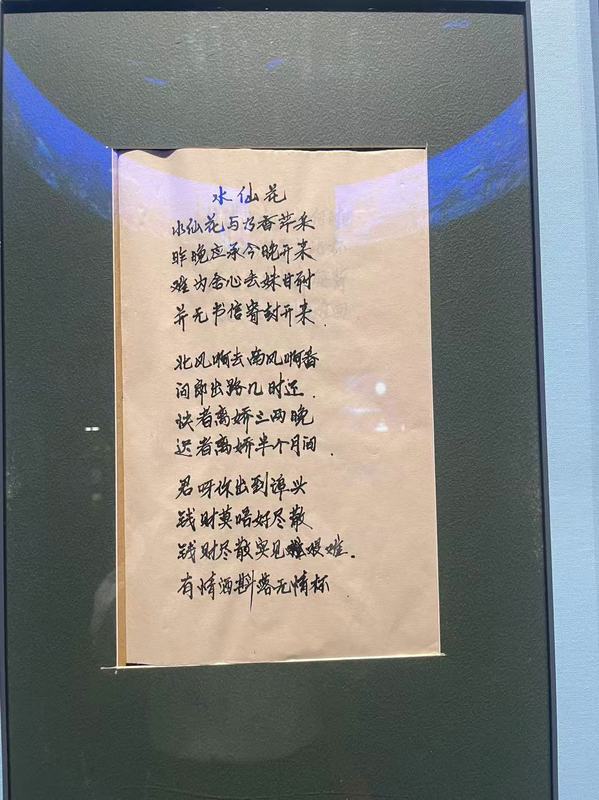 水仙花
水仙花与乃香芹朵
昨晚应承今晚开来
难为舍心去妹甘耐
并无书信寄封开来.
北风啊去南风啊番
问郎出路几时还.
快者离娇三两晚
迟者离娇半个月间.
君呀你出到谭头
钱财莫唔好尽散
钱财尽散实见艰难.
有情酒斟落无情杯